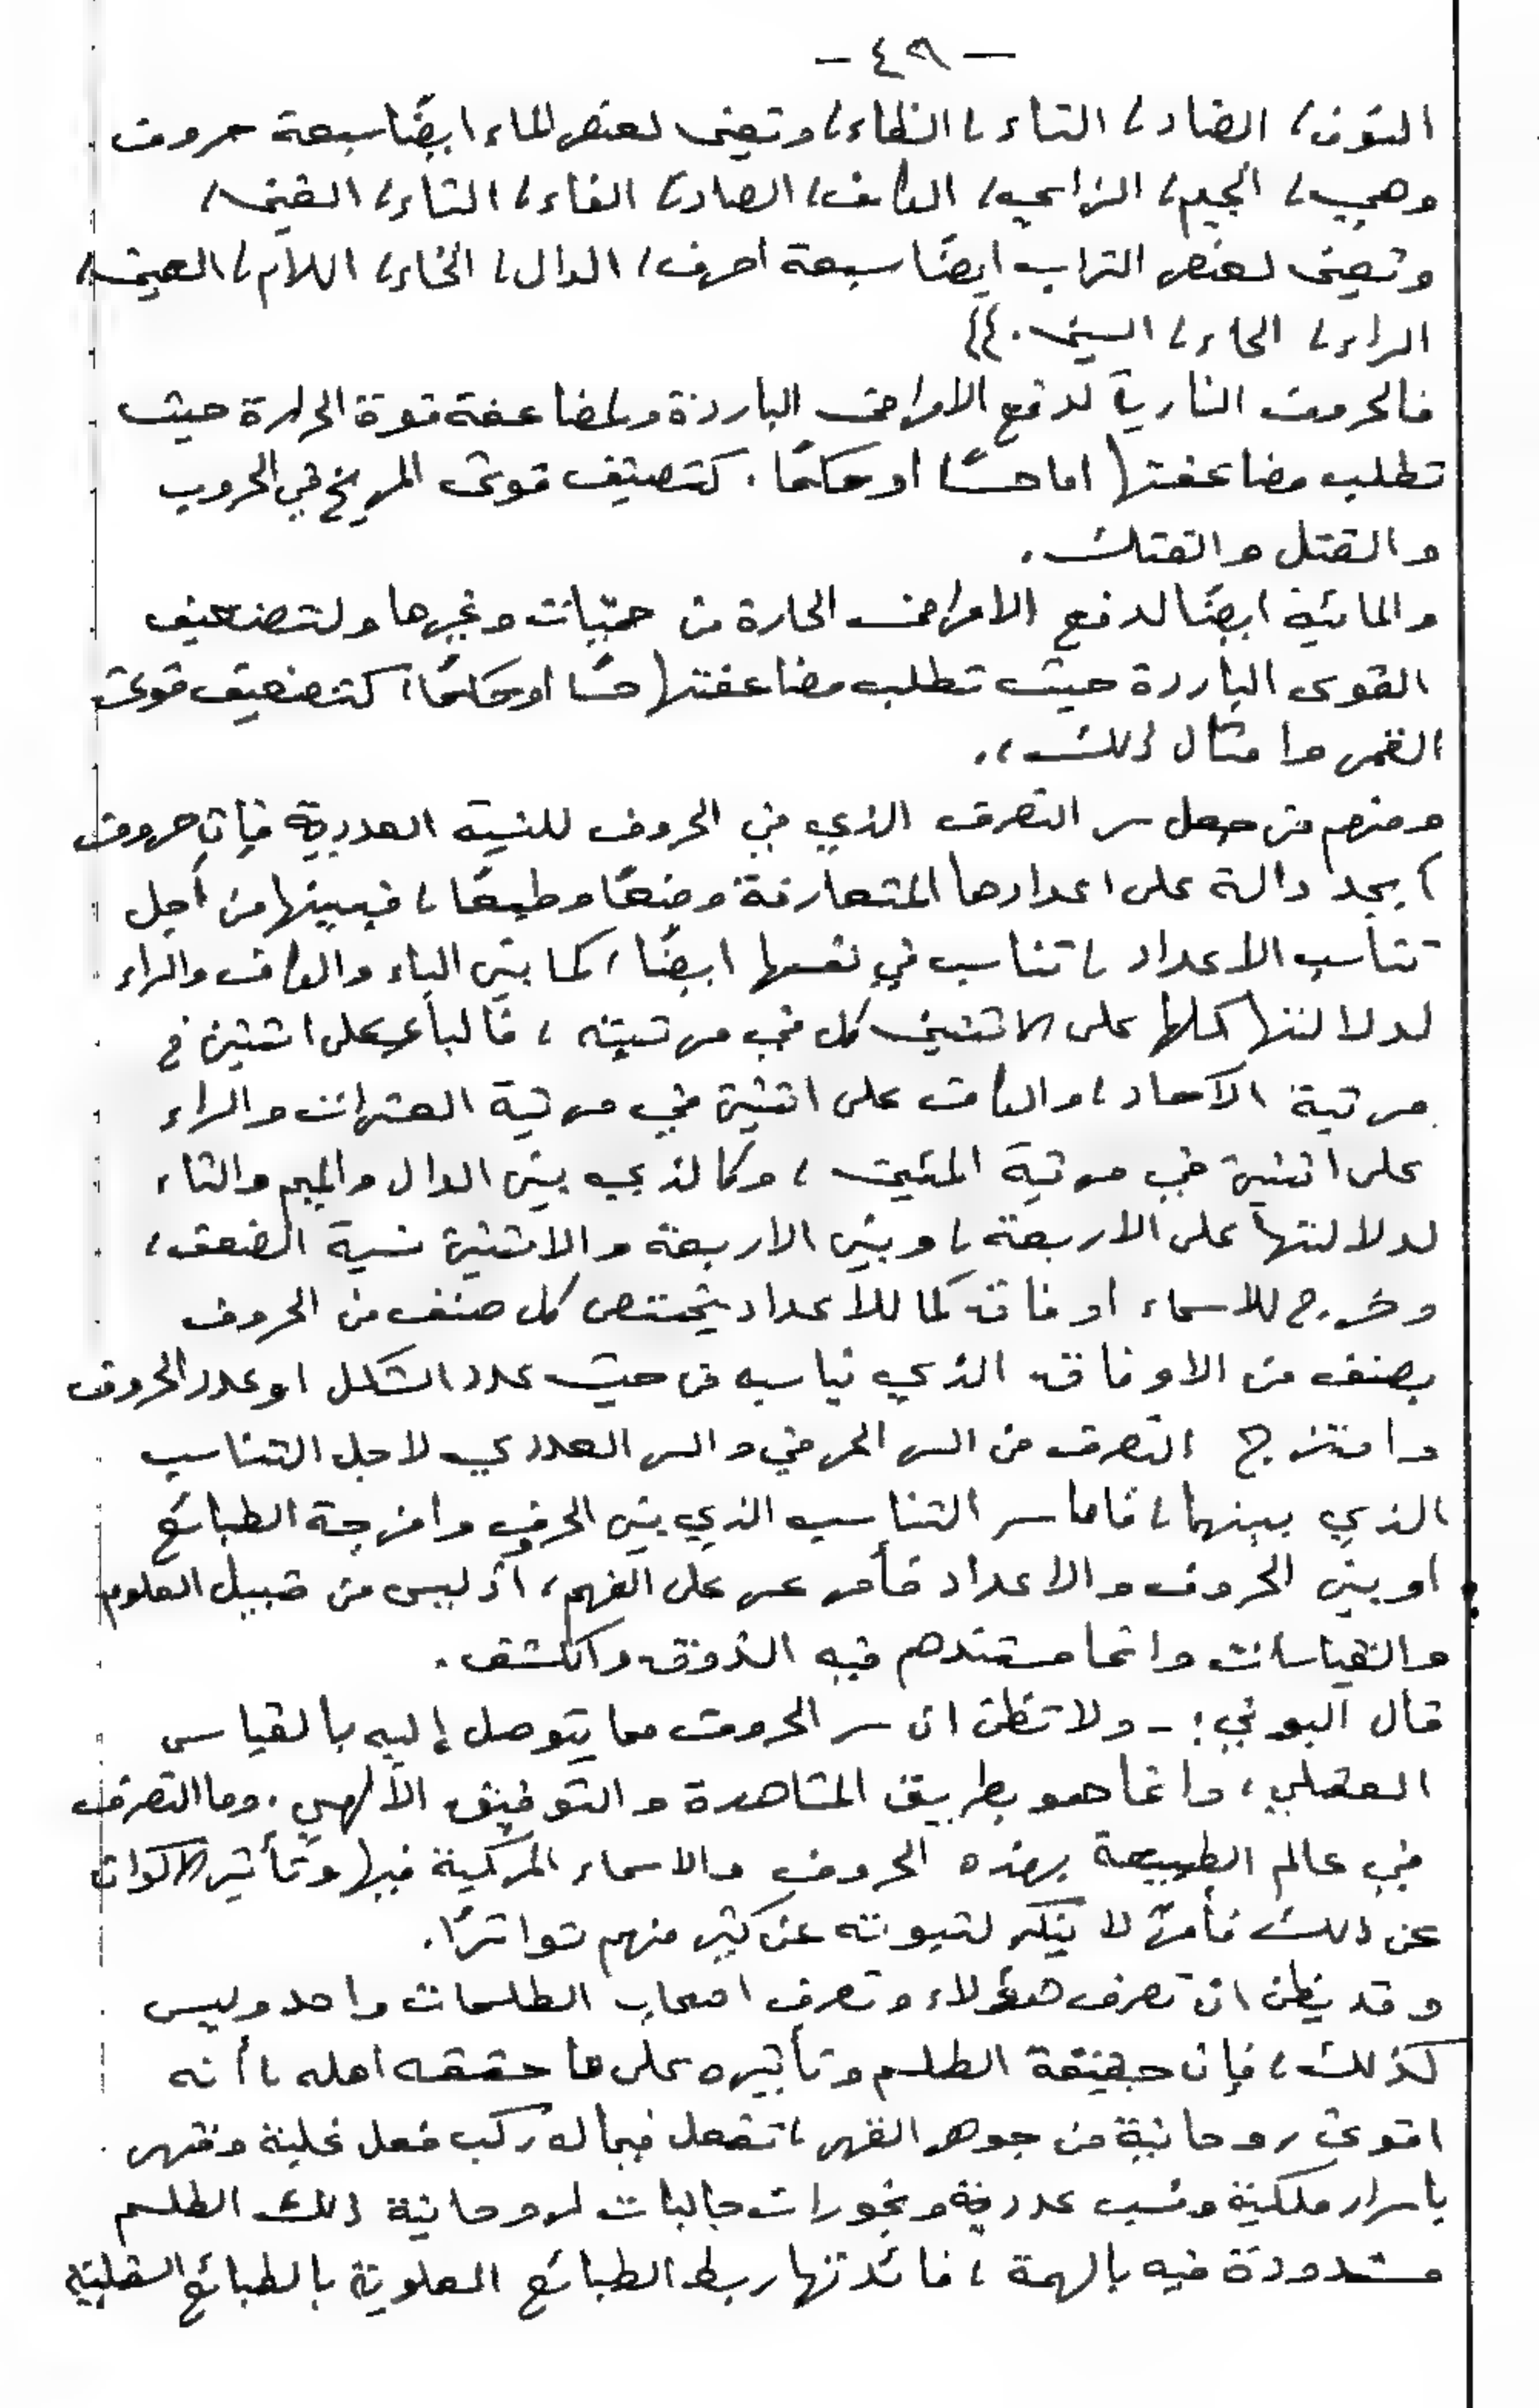 — ٤٩ —
النون، الضاد، التاء، الظاء، وتعين لعنصر الماء ايضًا سبعة حروف
وهي، الجيم، الزاي، الكاف، الصاد، القاء، الثاء، الغين،
وتعين لعنصر التراب ايضًا سبعة احرف، الدال، الخاء، اللام، العين،
الراء، الحاء، السين.))
فالحروف النارية لدفع الامراض الباردة ولمضاعفة قوة الحرارة حيث
تطلب مضاعفتها اما حسًا او حكمًا. كتصنيف قوى المريخ في الحروب
والقتل والفتك.
والمائية ايضًا لدفع الامراض الحارة من حميّات وغيرها ولتضعيف
القوى الباردة حيث تطلب مضاعفتها حسًا او حكمًا، كتضعيف قوى
القمر وامثال ذلك،.
ومنهم من جعل سر التصرف الذي في الحروف للنسبة العددية فإن حروف
أبجد دالة على اعدادها المتعارفة وضعًا وطبعًا، فبينها من أجل
تناسب الاعداد، تناسب في نفسها ايضًا، كما بين الباء والكاف والراء
لدلالتها كلها على الاثنين كل في مرتبته، فالباء على اثنين في
مرتبة الآحاد، والكاف على اثنين في مرتبة العشرات والراء
على اثنين في مرتبة المئين، وكالذي بين الدال والميم والتاء،
لدلالتها على الاربعة، وبين الاربعة والاثنين نسبة الضعف،
وخرج للاسماء اوفاق كما للاعداد يختص كل صنف من الحروف
بصنف من الاوفاق الذي يناسبه من حيث عدد الشكل او عدد الحروف
وامتزج التصرف من السر الحرفي والسر العددي لاجل التناسب
الذي بينهما، فاما سر التناسب الذي بين الحروف وامزجة الطبائع
او بين الحروف والاعداد فأمر عسر على الفهم، اذ ليس من قبيل العلوم
والقياسات وانما مستندهم فيه الذوق والكشف.
قال البوني: - ولا تظن ان سر الحروف مما يتوصل إليه بالقياس
العقلي، وانما هو بطريق المشاهدة والتوفيق الألهي. وما التصرف
في عالم الطبيعة بهذه الحروف والاسماء المركبة فيها وتأثير الاكوان
عن ذلك فأمرٌ لا ينكر لثبوته عن كثير منهم تواترًا.
وقد يظن ان تصرف هؤلاء وتصرف اصحاب الطلسمات واحد وليس
كذلك، فإن حقيقة الطلسم وتأثيره على ما حققه اهله، أنه
اقوى روحانية من جوهر القهر، تفعل فيما له ركب فعل غلبة وقهر
باسرار ملكية ونسب عددية وبخورات جالبات لروحانية ذلك الطلسم
مشدودة فيه بالهمة، فائدتها ربط الطبائع العلوية بالطبائع السفلية